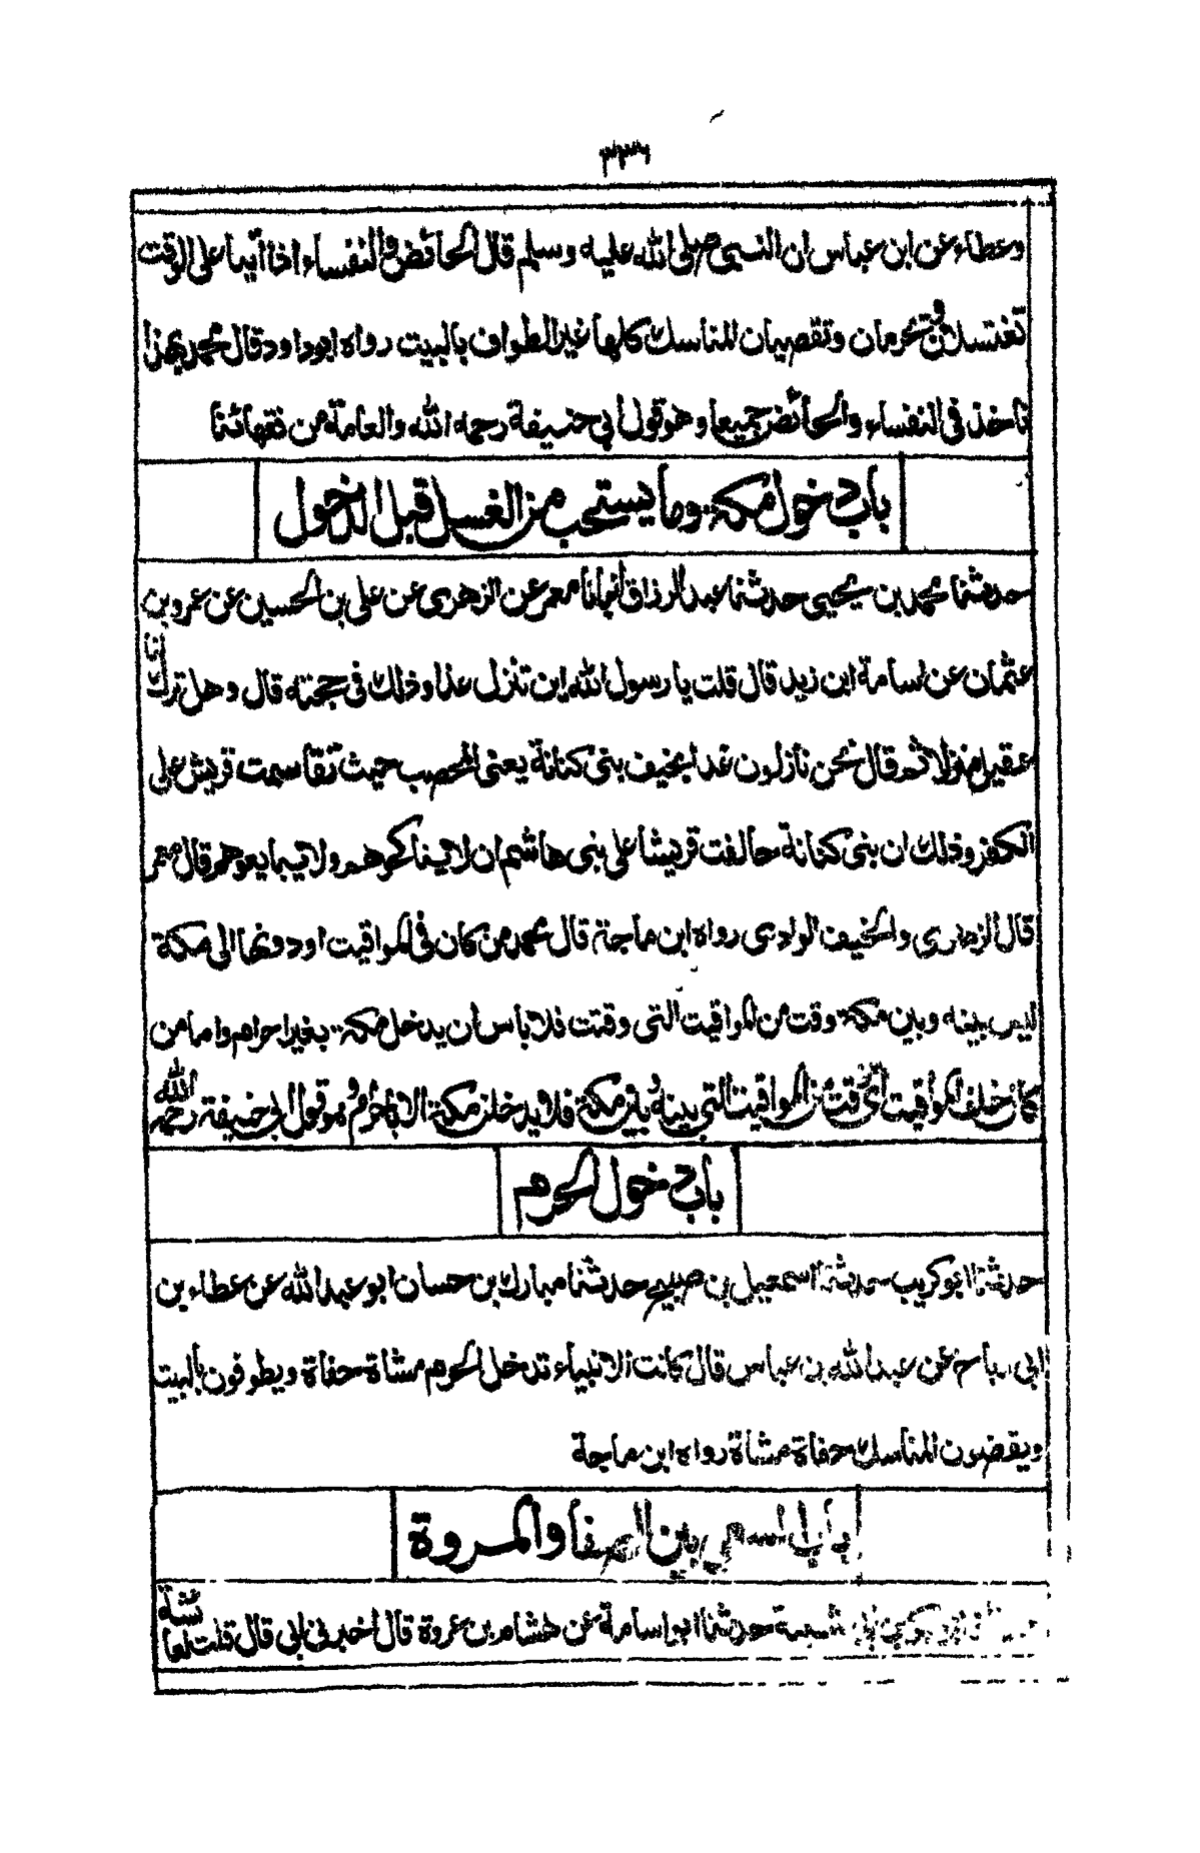 ٣٣٦
وعطاء عن ابن عباس ان النبي صلى الله عليه وسلم قال الحائض والنفساء اذا أتيا على الوقت
تغتسلان وتحرمان وتقضيان المناسك كلها غير الطواف بالبيت رواه ابوداود قال محمد بهذا
ناخذ فى النفساء والحائض جميعا وهو قول أبي حنيفة رحمه الله والعامة من فقهائنا
باب دخول مكة وما يستحب من الغسل قبل الدخول
حدثنا محمد بن يحيى حدثنا عبد الرزاق أنبأنا معمر عن الزهرى عن على بن الحسين عن عمرو بن
عثمان عن اسامة ابن زيد قال قلت يا رسول الله اين تنزل غدا وذلك فى حجته قال وهل ترك لنا
عقيل منزلا ثم قال نحن نازلون غدا بخيف بنى كنانة يعنى المحصب حيث تقاسمت قريش على
الكفر وذلك ان بنى كنانة حالفت قريشا على بنى هاشم ان لا يناكحوهم ولا يبايعوهم قال معمر
قال الزهرى والخيف الوادى رواه ابن ماجة قال محمد من كان فى المواقيت او دونها الى مكة
ليس بينه وبين مكة وقت من المواقيت التى وقتت فلا باس ان يدخل مكة بغير احرام واما من
كان خلف المواقيت اى وقت من المواقيت التي بينه وبين مكة فلا يدخلن مكة الا باحرام وهو قول ابي حنيفة رحمه الله
باب دخول الحرم
حدثنا ابو كريب حدثنا اسمعيل بن صبيح حدثنا مبارك بن حسان ابو عبد الله عن عطاء بن
ابى رباح عن عبد الله بن عباس قال كانت الانبياء تدخل الحرم مشاة حفاة ويطوفون بالبيت
ويقضون المناسك حفاة مشاة رواه ابن ماجة
باب السعي بين الصفا والمروة
حدثنا ابو بكر بن ابي شيبة حدثنا ابو اسامة عن هشام بن عروة قال اخبرنى ابى قال قلت لعائشة